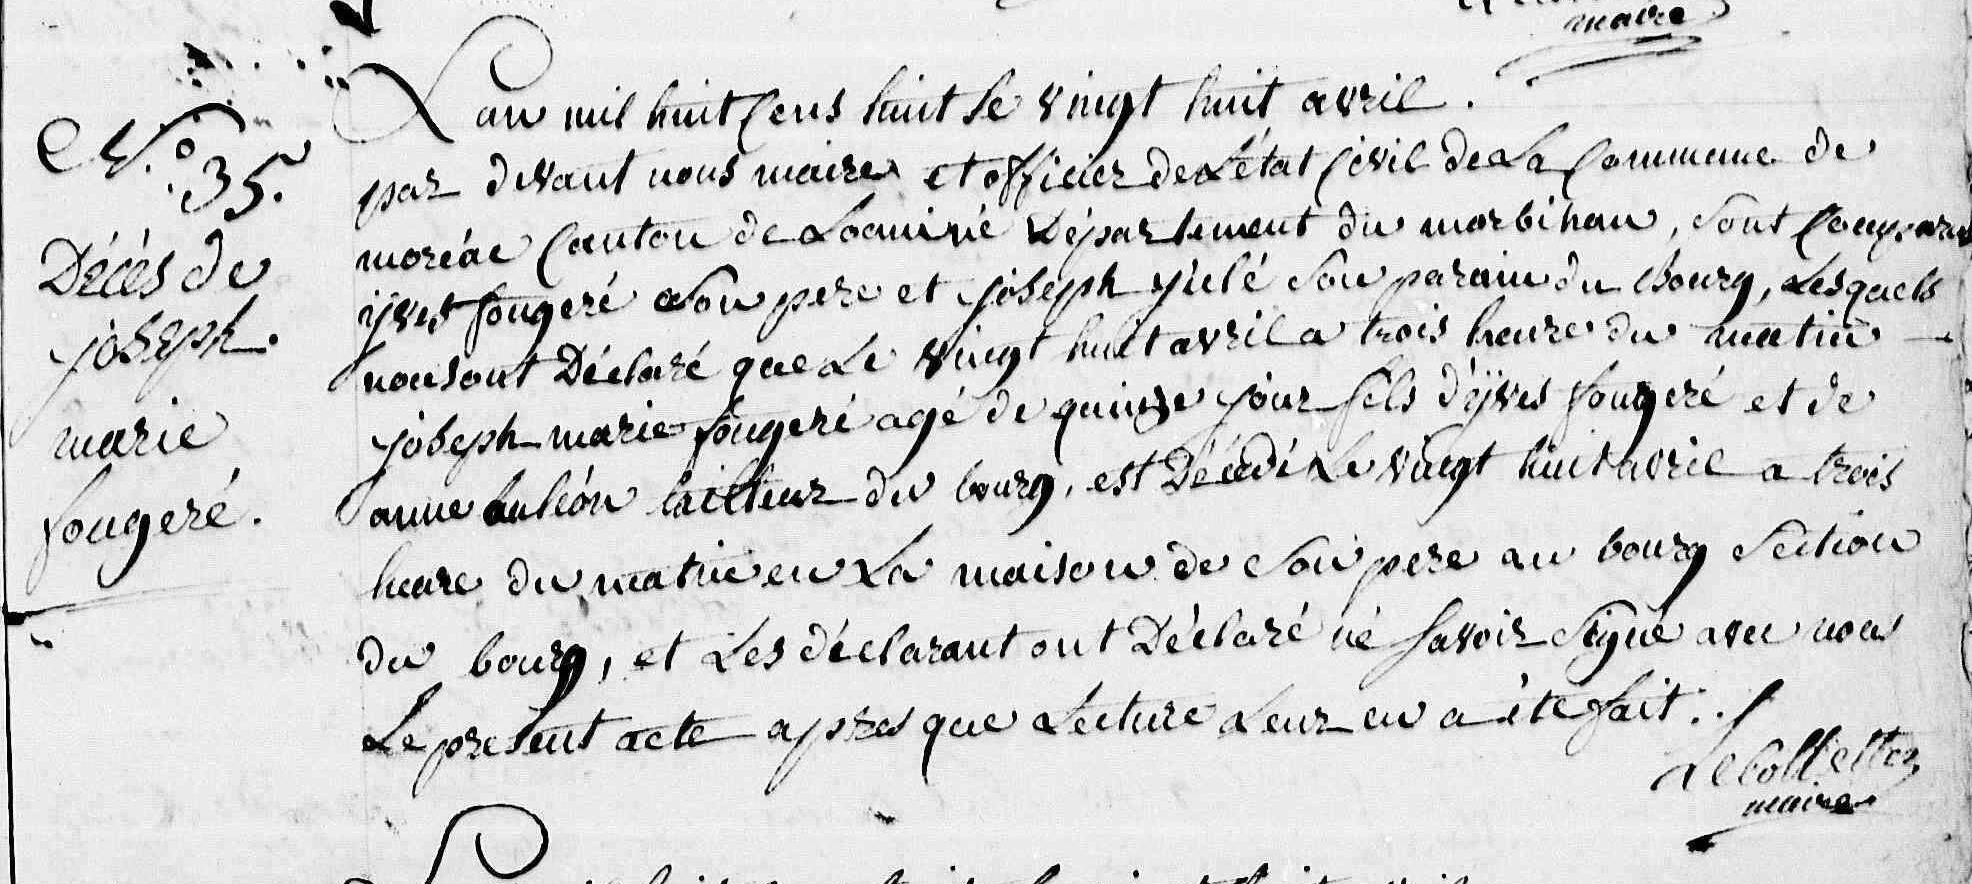 maire
N.o 35.
Décés de
joseph.
marie
fougeré.
Lan mil huit Cens huit le vingt huit avril.
par devant nous maire et officier de L'état Civil de La Commune de
moréac Canton de Locminé Département du morbihan, sont
yves fougeré son pere et joseph son parain du bourg, Lesquels
nousont Déclaré que Le vingt huit avril a trois heure du matin
joseph marie fougeré agé de quinze jour fils d'yves fougeré et de
anne tailleur du bourg, est Décédé Le vingt huit avril a trois
heure du matin en La maison de son pere au bourg Section
du bourg, et Les déclarant ont Déclaré né savoir Signé avec nous
Le present acte apres que Lecture Leur en a ète fait.
maire